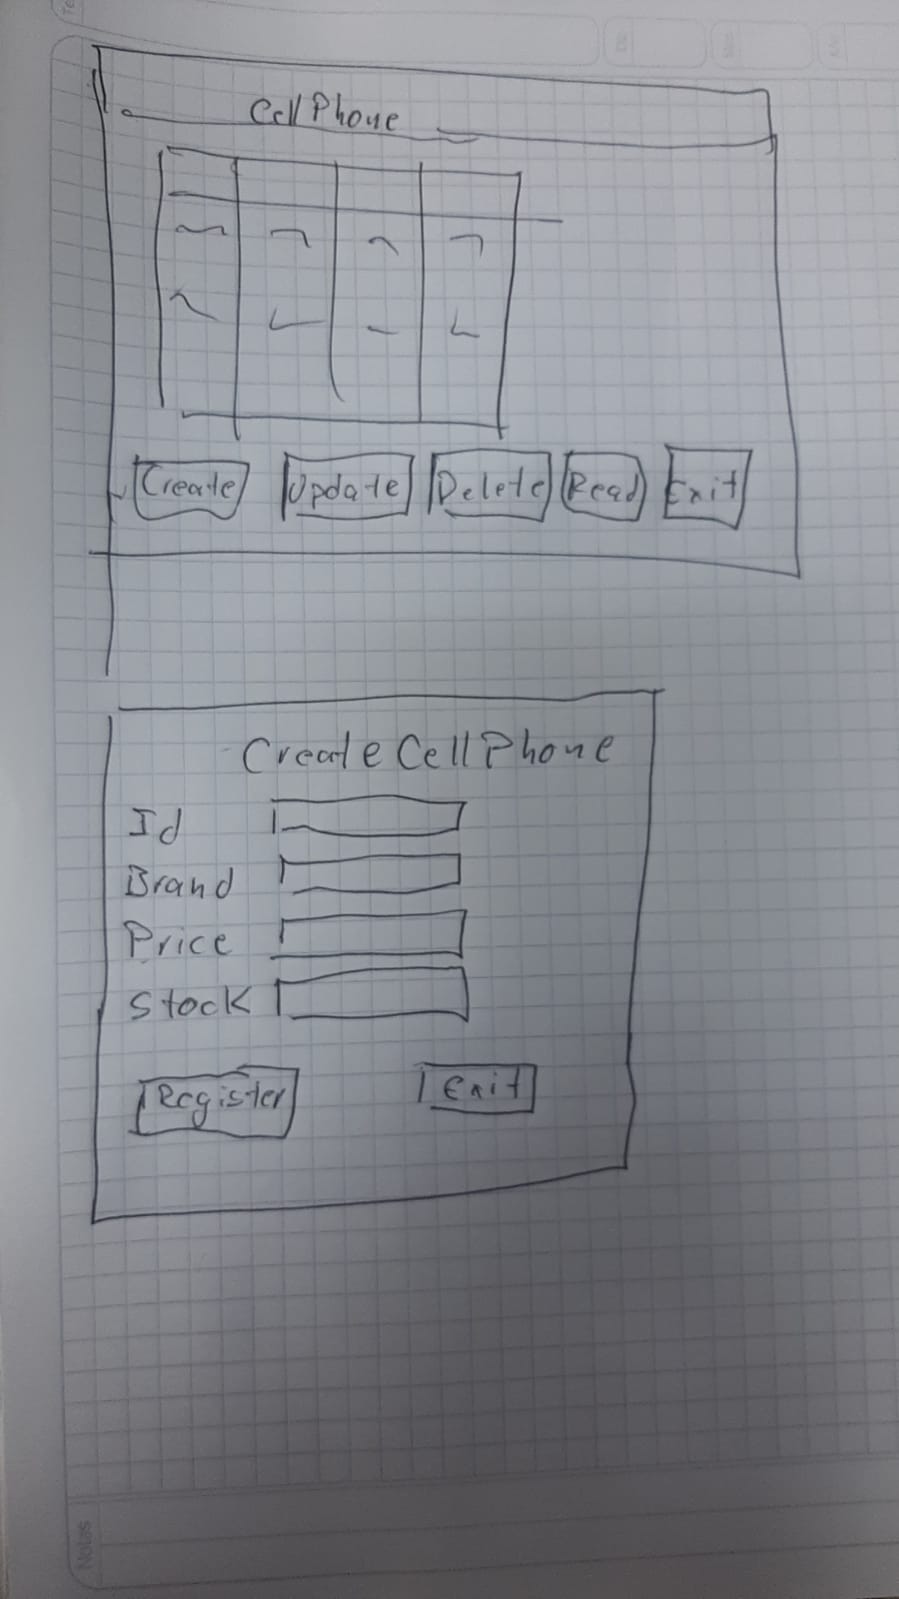 Cell Phone
Create Update Delete Read Exit
Create Cell Phone
Id
Brand
Price
Stock
Register Exit
Notas